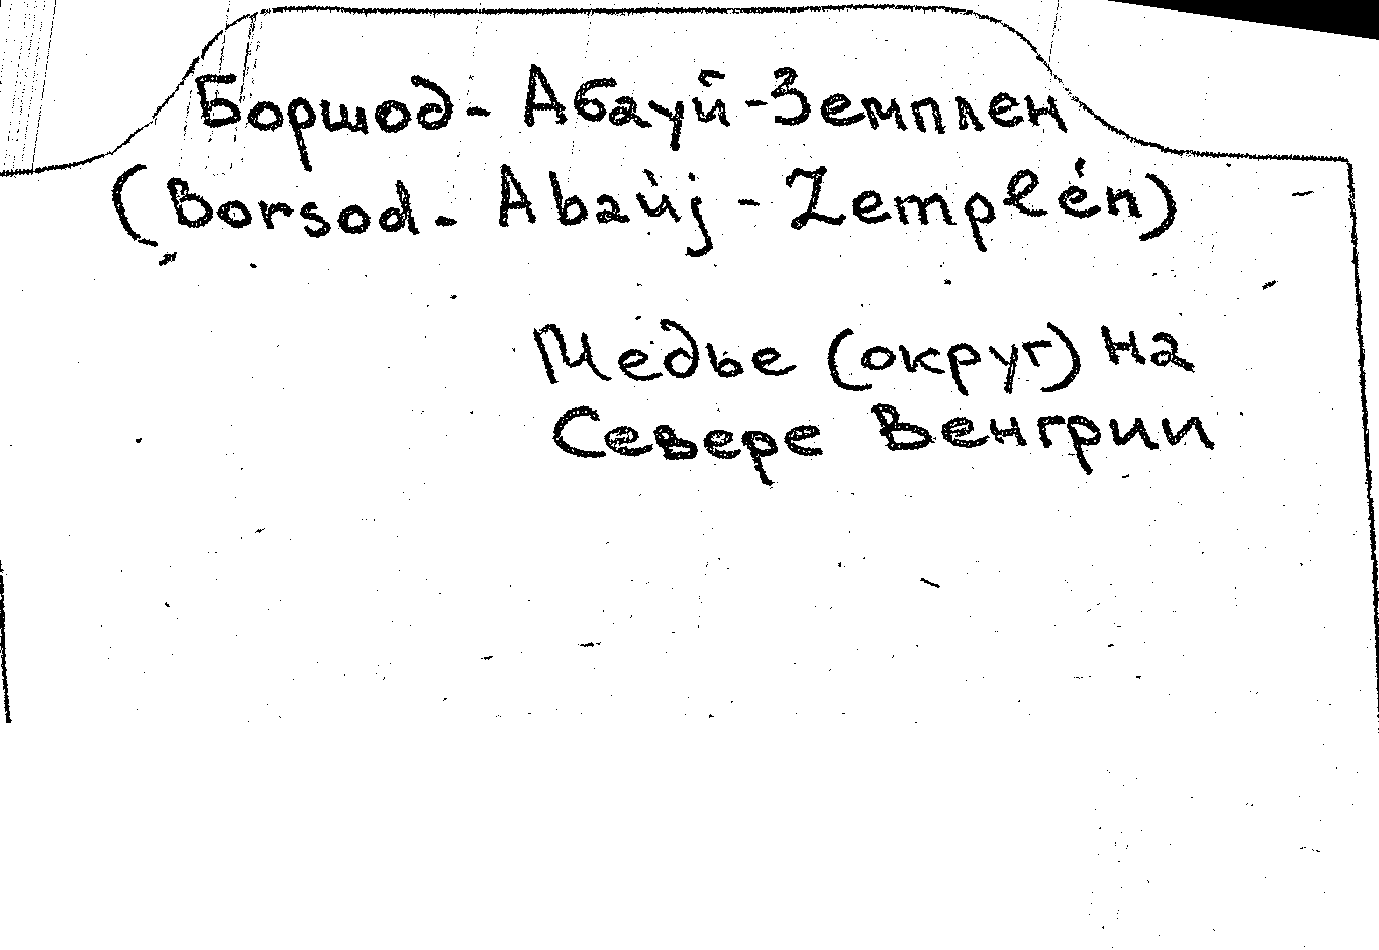 Боршод- Абауй-Земплен
(Borsod- Abaúj - Zemplén)
Медье (округ) на
Севере Венгрии